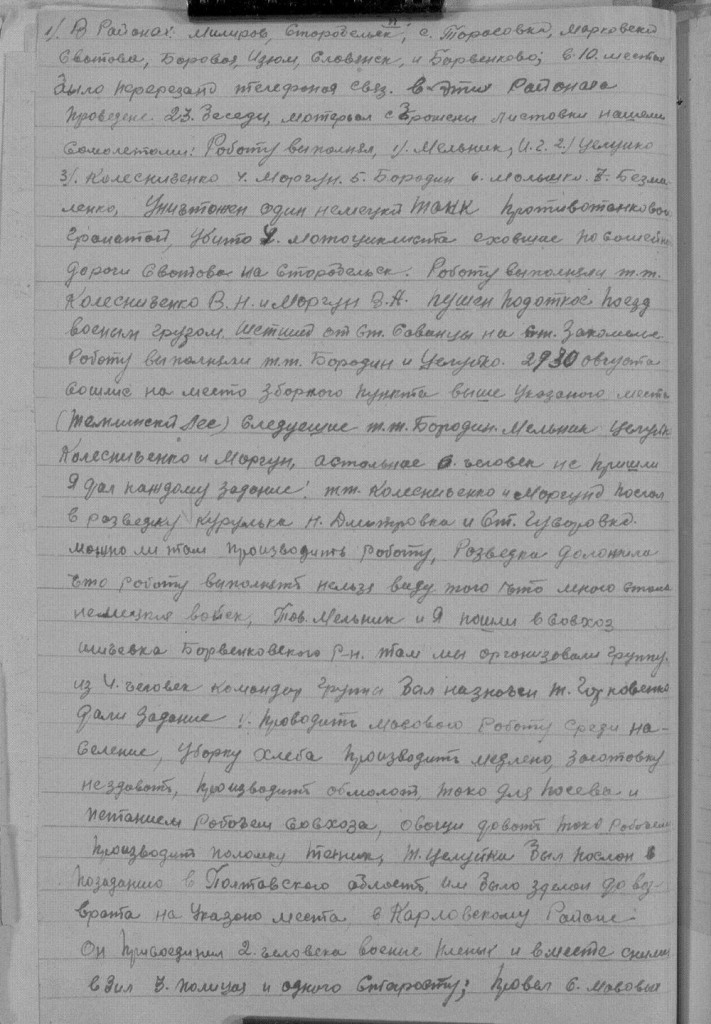 1/. В Районах: Милиров, Старобельск, с. Тарасовка, Марковский
Сватова, Боровая, Изюм, Славянск, и Барвенково; в 10. местах
было перерезано телефоная связ. в этих Районах
проведено 23. беседы, матерьял сброшены листовки нашеми
самолетоми: Роботу выполнял, 1/. Мельник, И.Г. 2/ Целуйко
3/. Колесниченко 4. Моргун. 5. Бородин 6. Малышко. 7. Безма-
ленко, Уничтожен один немецкий танк Противотанковой
гранатой, убито 4. мотоциклиста ехавшие по
дороги Сватова на Старобельск. Роботу выполняли т.т.
Колесниченко В.Н. и Моргун В.А. пущен подоткос поезд
военым грузом. Шетший от ст. Савинцы на ст. Закомельс
Роботу выполняли т.т. Бородин и Целуйко. 29 30 августа
сошлис на место зборного пункта выше указаного места
(Теплинский Лес) следующие т.т. Бородин. Мельник Целуйк
Колесниченко и Моргун, астольные 6. человек не пришли
Я дал каждому задание! тт. Колесниченко и Моргуна послал
в разведку Курулька Н. Дмитровка и ст. Гусаровка.
можно ли там производить роботу, Разведка доложила
что роботу выполнять нельзя виду того что много стала
немецких войск, Тов. Мельник и Я пошли в совхоз
Барвенковского Р-н. там мы организовали группу.
из 4. человек командор групы был назначен т. Горковенко
дали задание !. проводить масовою роботу среди на-
селение, уборку хлеба производить медлено, заготовку
нездават, производить обмолот, токо для посева и
петанием робочем совхоза, овощи доват токо робочем
производит поломку техники, т. Целуйки был послон в
позаданию в Полтавского область, им было зделон до воз-
врата на указоно места, в Карловскому Районе:
Он присоединил 2. человека военые пленые и вместе сними
взил 3. полицая и одного Старосту; провел 6. масовые